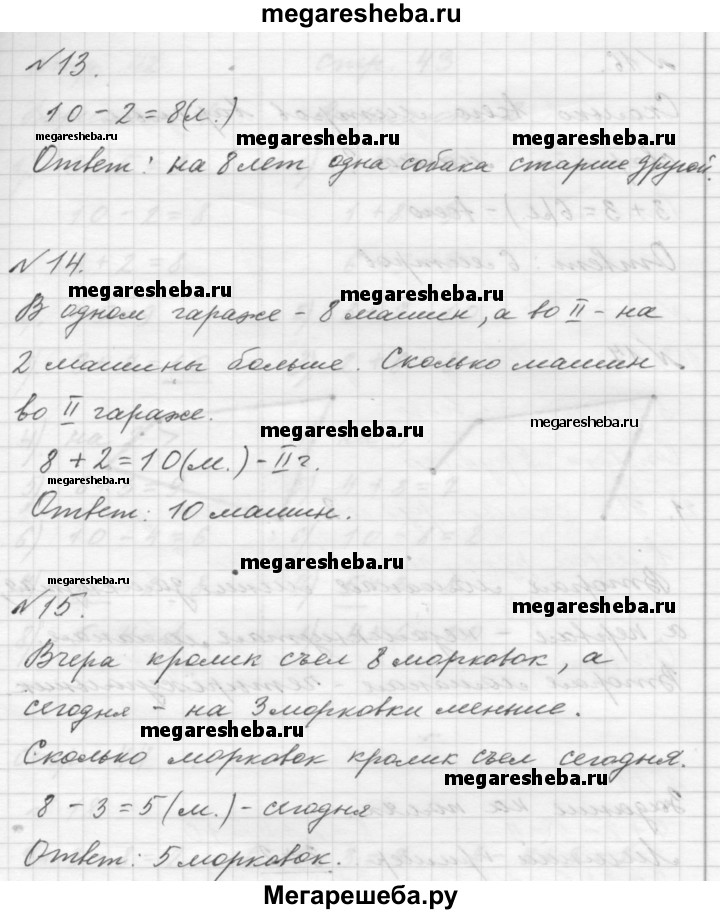 megaresheba.ru
№13.
10 - 2 = 8(л.)
megaresheba.ru megaresheba.ru megaresheba.ru
Ответ: на 8 лет одна собака старше другой.
№14.
megaresheba.ru megaresheba.ru
В одном гараже - 8 машин, а во II - на
2 машины больше. Сколько машин
во II гараже.
megaresheba.ru megaresheba.ru
8 + 2 = 10(м.) - II г.
Ответ: 10 машин.
megaresheba.ru
megaresheba.ru
№15.
Вчера кролик съел 8 морковок, а
сегодня - на 3 морковки меньше.
megaresheba.ru
Сколько морковок кролик съел сегодня.
megaresheba.ru
8 - 3 = 5(м.) - сегодня
Ответ: 5 морковок.
Мегарешеба.ру